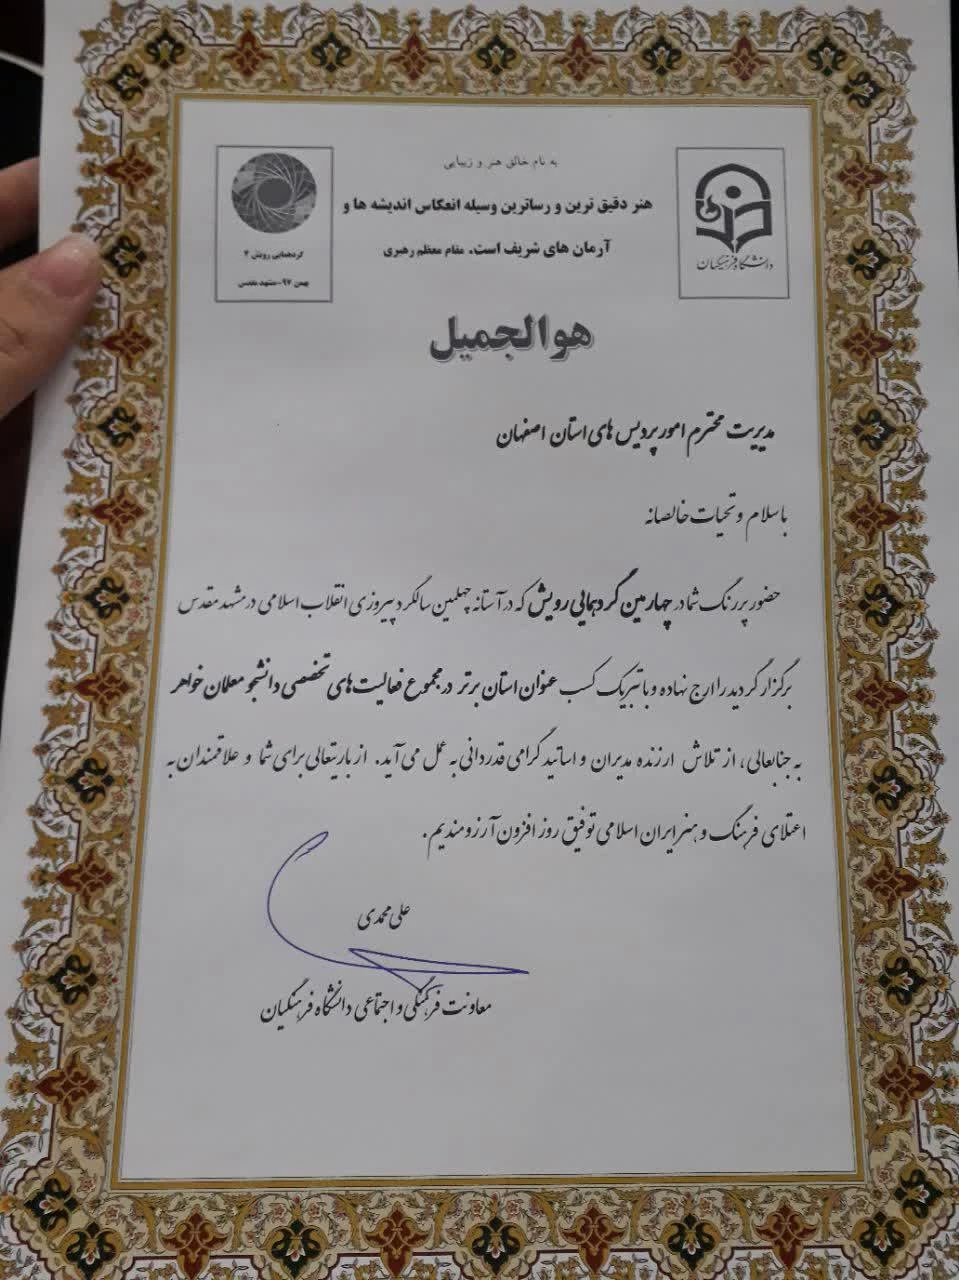 به نام خالق هنر و زیبایی
هنر دقیق ترین و رساترین وسیله انعکاس اندیشه ها و
آرمان های شریف است. مقام معظم رهبری
دانشگاه فرهنگیان
گردهمایی رویش ۴
بهمن ۹۷-مشهد مقدس
هوالجمیل
مدیریت محترم امور پردیس های استان اصفهان
با سلام و تحیات خالصانه
حضور پررنگ شما در چهارمین گردهمایی رویش که در آستانه چهلمین سالگرد پیروزی انقلاب اسلامی در مشهد مقدس
برگزار گردید را ارج نهاده و با تبریک کسب عنوان استان برتر در مجموع فعالیت های تخصصی دانشجو معلمان خواهر
به جنابعالی، از تلاش ارزنده مدیران و اساتید گرامی قدردانی به عمل می آید. از باریتعالی برای شما و علاقمندان به
اعتلای فرهنگ و هنر ایران اسلامی توفیق روز افزون آرزومندیم.
علی محمدی
معاونت فرهنگی و اجتماعی دانشگاه فرهنگیان